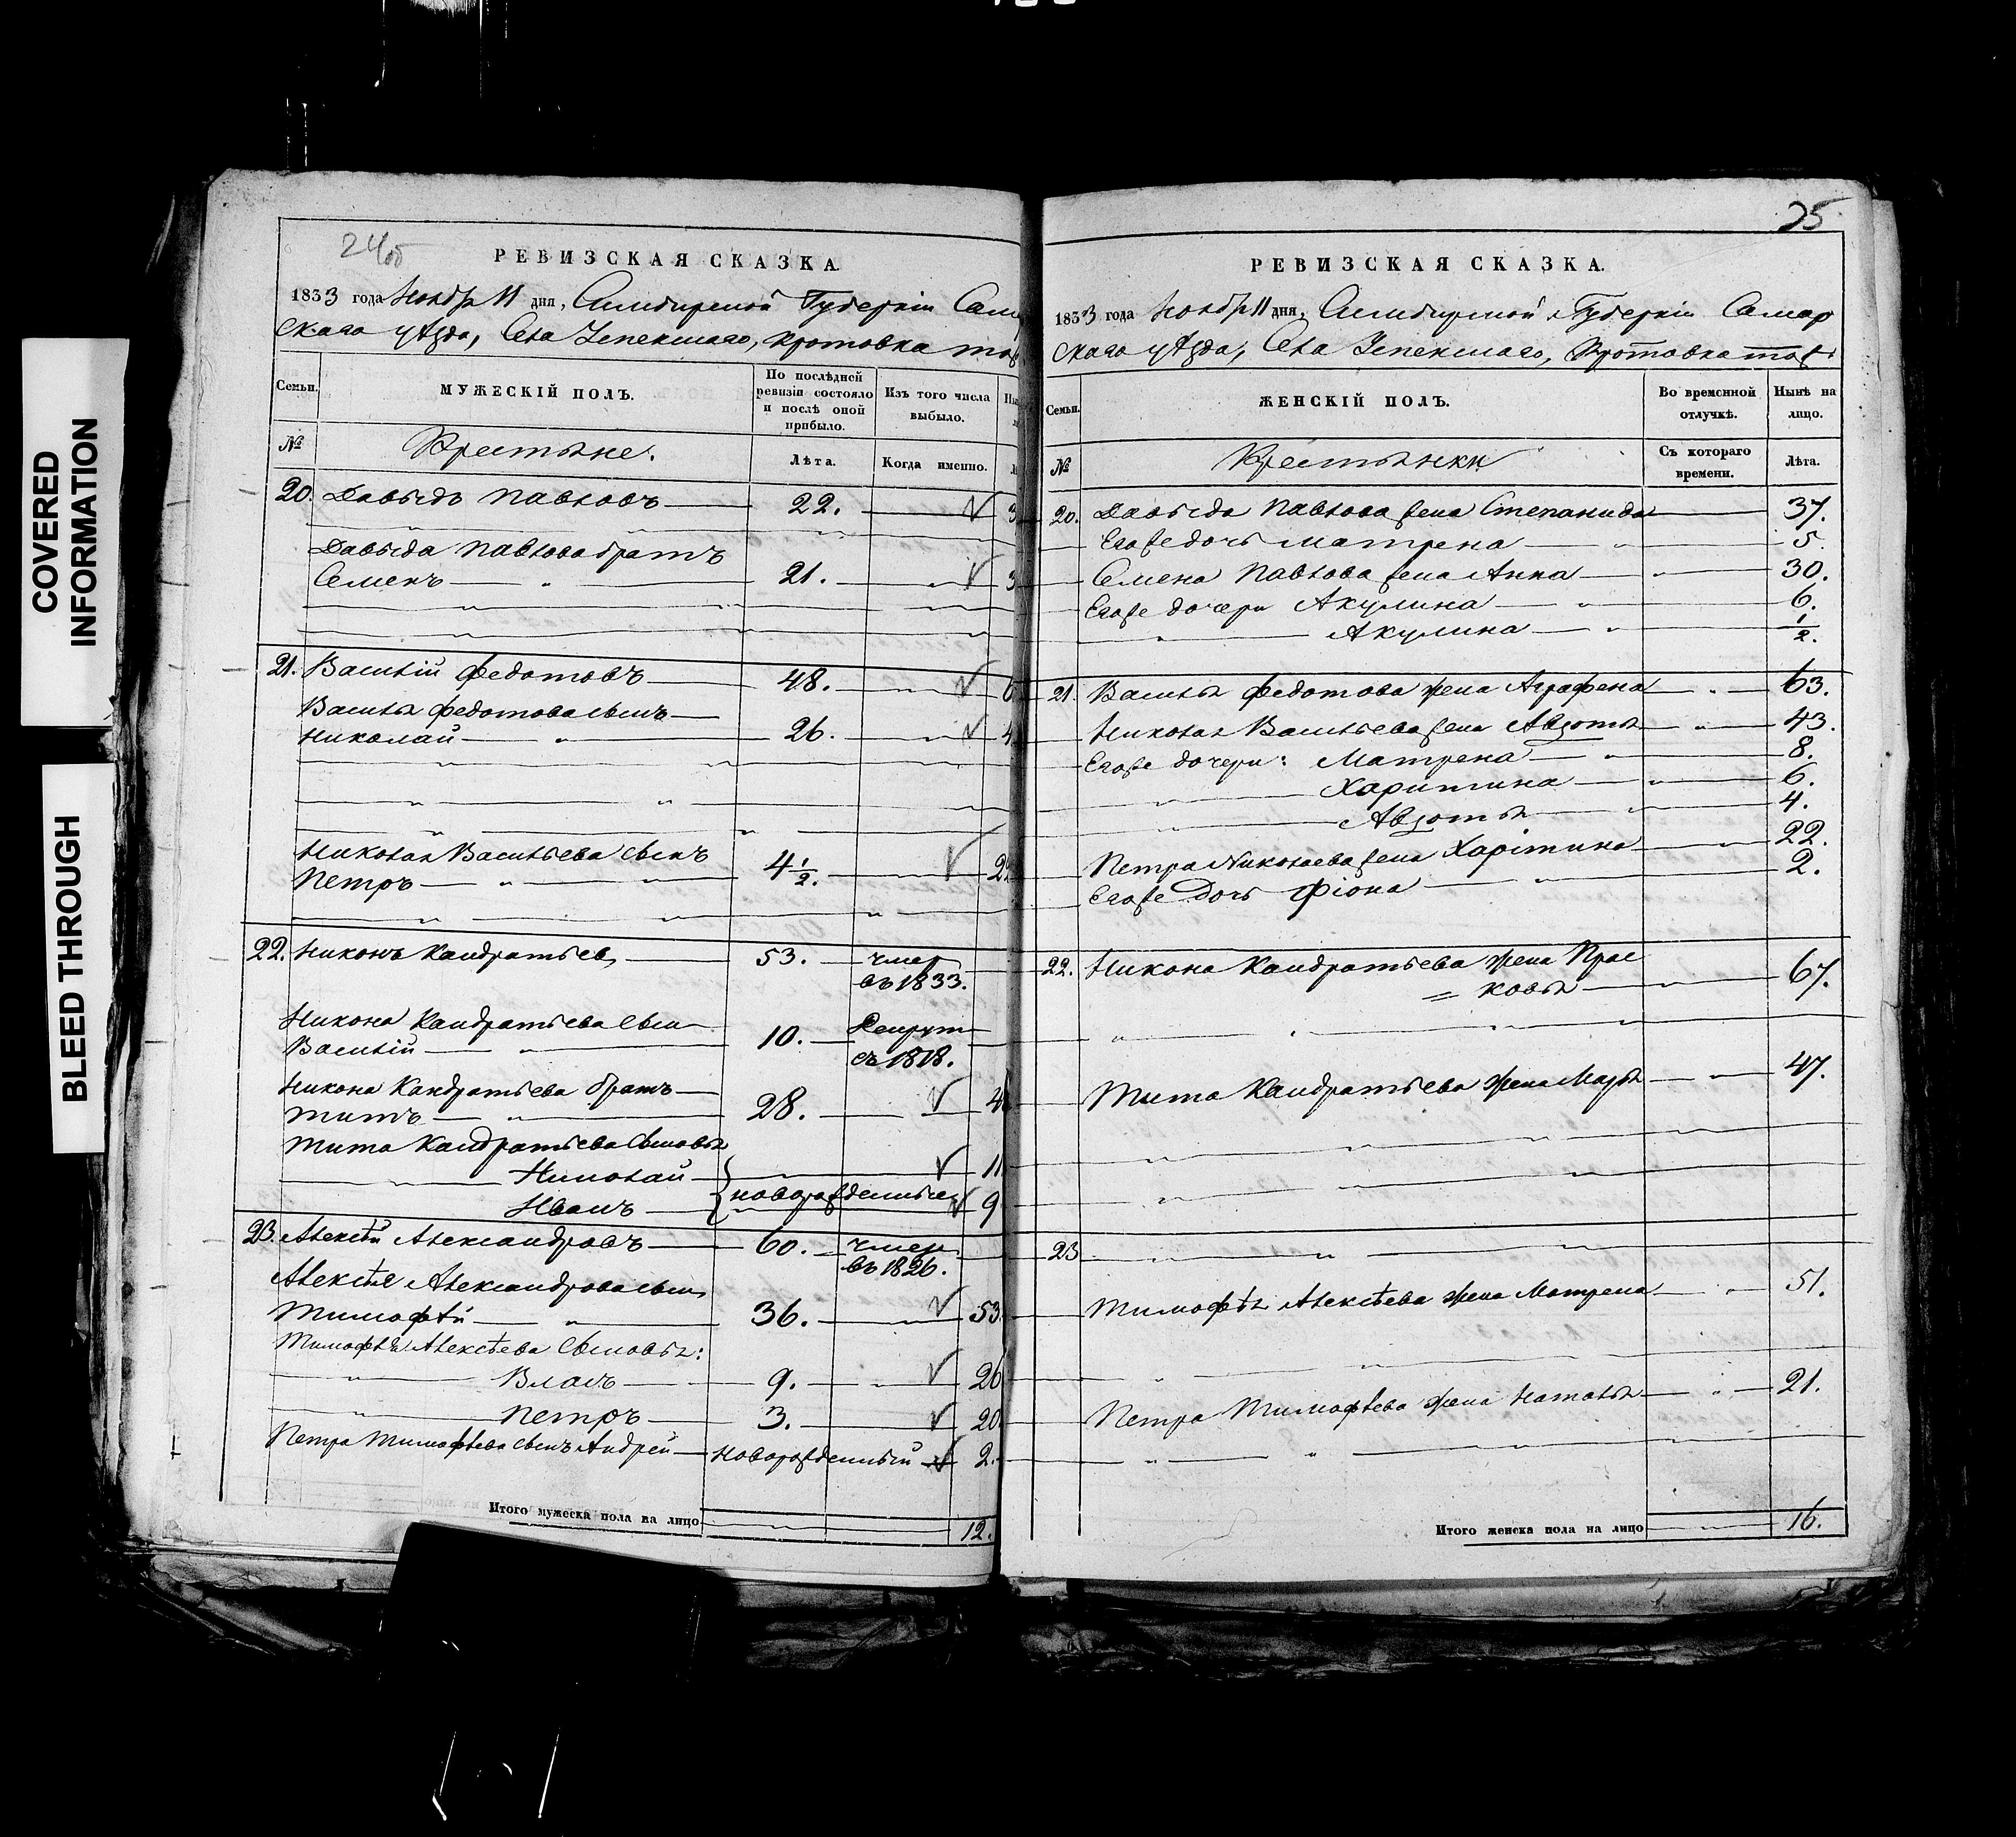 COVERED
INFORMATION
BLEED THROUGH
24об
РЕВИЗСКАЯ СКАЗКА.
1833 года Ноября 11 дня, Симбирской Губерніи Сам
скаго уѣзда, Села Кротовка тож
Семьи.
МУЖЕСКІЙ ПОЛЪ.
По послѣдней
ревизіи состояло
и послѣ оной
прибыло.
Изъ того числа
выбыло.
№
Крестьяне.
Лѣта.
Когда именно.
20. Давыдъ Павловъ 22. 3
Давыда Павлова братъ
Семенъ 21. 3
21. Василій Федотовъ 48. 6
Василья Федотова сынъ
Николай 26. 4
Николая Васильева сынъ
Петръ 4 1/2. 22
22. Никонъ Кандратьев 53. умер
въ 1833.
Никона Кандратьева сын
Василій 10. Рекрут
съ 1818.
Никона Кандратьева братъ
Титъ 28. 4
Тита Кандратьева сыновья
Николай 11
Иванъ новорожденные 9
23. Алексѣй Александровъ 60. умер.
въ 1826.
Алексѣя Александрова сын
Тимофѣй 36. 53
Тимофѣя Алексѣева сыновья:
Власъ 9. 26
Петръ 3. 20
Петра Тимофѣева сынъ Андрей новорожденный 2.
Итого мужеска пола на лицо 12.
25
РЕВИЗСКАЯ СКАЗКА.
1833 года Ноября 11 дня, Симбирской Губерніи Самар
скаго уѣзда, Села Кротовка тож
Семьи.
ЖЕНСКІЙ ПОЛЪ.
Во временной
отлучкѣ.
Нынѣ на
лицо.
№
Крестьянки
Съ котораго
времени.
Лѣта.
20. Давыда Павлова жена Степанида 37.
Егоже дочь Матрена 5.
Семена Павлова жена Анна 30.
Егоже дочери Акулина 6.
Акулина 1/2.
21. Василья Федотова жена Аграфена 63.
Николая Васильева жена Авдотья 43.
Егоже дочери: Матрена 8.
Харитина 6.
Авдотья 4.
Петра Николаева жена Харітина 22.
Егоже дочь Фіона 2.
22. Никона Кандратьева жена Прас
= ковья 67.
Тита Кандратьева жена Марья 47.
23
Тимофѣя Алексѣева жена Матрена 51.
Петра Тимофѣева жена Наталья 21.
Итого женска пола на лицо 16.